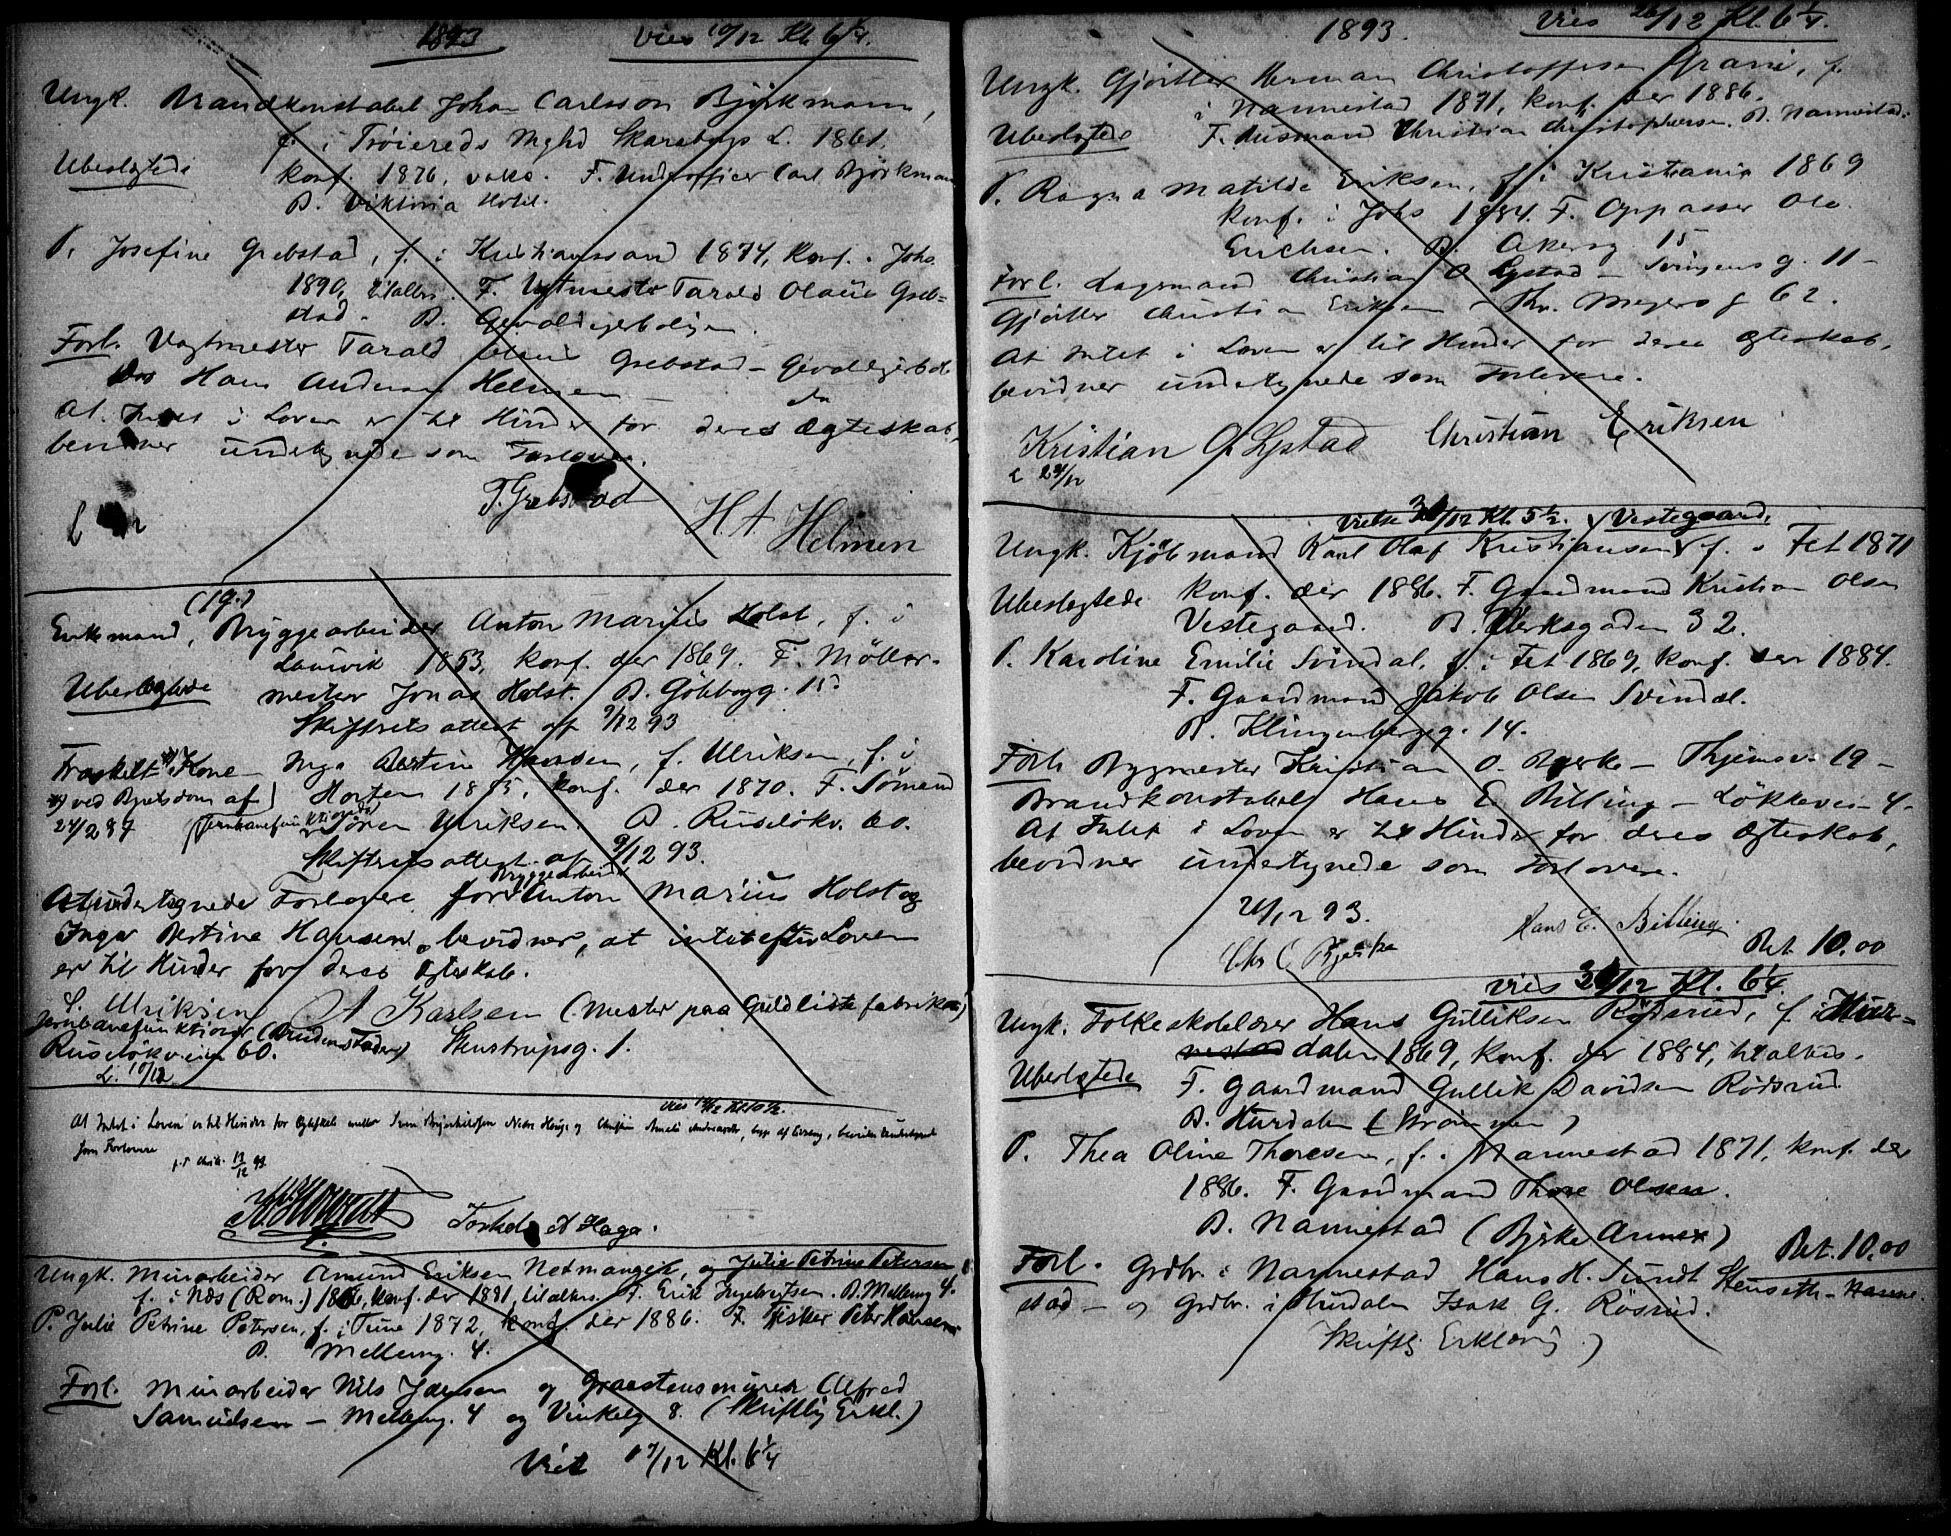 1893 Vies 10/12 Kl. 6 1/4.
Ungk. Brandkonstabel Johan Carlsson Björkmann,
f. i Tröiereds Mghd Skaraborgs L. 1861.
Ubeslegtede konf. 1876, vakc. F. Underofficer Carl Björkman
B. Viktoria Hotel.
P. Josefine Grebstad, f. i Kristianssand 1874, konf. i Johs
1890, tilalters. F. Vagtmester Tarald Olaus Greb-
stad. B. Gevaldigerboligen.
Forl. Vagtmester Tarald Grebstad - Gevaldigerbol
Hans Andersen Helmen -
At Intet i Loven er til Hinder for deres Ægteskab,
bevidner undertegnede som Forlovere.
T. Grebstad H. A. Helmen
(19.)
Enkemand, Bryggearbeider Anton Marius Holst, f. i
Laurvik 1853, konf. der 1869. F. Möller-
Ubeslegtede mester Jonas Holst. B. Göteborgg. 15
Skifterets attest af 9/12 93
Fraskilt *) Kone - Inga Bertine Hansen, f. Ulriksen, f. i
*) ved Bgetsdom af Horten 1855, konf. der 1870. F. Sömand
24/2 87 (Jernbanefunktionær) Sören Ulriksen. B. Ruselökv. 60.
Skifterets attest af 9/12 93.
Bryggearbeider
At undertegnede Forlovere for Anton Marius Holst og
Inga Bertine Hansen, bevidner, at intet efter Loven
er til Hinder for deres Ægteskab.
S. Ulriksen A Karlsen (Mester paa Guldlistefabriken)
Jernbanefunktionær (Brudens Fader) Stenstrupsg. 1.
Ruselökveien 60.
L. 10/12
Vies 13/12 Kl 10 1/2.
At Intet i Loven er til Hinder for Ægteskab mellem og Christine Amalie bevidner undertegnede
som Forlovere
p.t. Chria. 13/12 93
Torkel A Haga.
Ungk. Murarbeider Amund Eriksen Notmangen, og Julie Petrine Petersen
f. i Næs (Rom.) 1866, konf. der 1881, tilalters. F. Erik Ingebretsen. B. Mellemg 4.
P. Julie Petrine Petersen, f. i Tune 1872, konf. der 1886. F. Fisker Peter Hansen
B. Mellemg. 4.
Forl. Murarbeider Nils Jensen og Graastensmurer Alfred
Samuelsen - Mellemg. 4 og Vinkelg 8. (Skriftlig Erkl.)
Viet 17/12 Kl. 6 1/4
1893. Vies 26/12 Kl. 6 1/4.
Ungk. Gjørtler Herman Christoffersen Grani, f.
i Nannestad 1871, konf. der 1886.
Ubeslegtede F. Husmand Christian Christophersen. B. Nannestad.
P. Ragna Matilde Eriksen, f. i Kristiania 1869
konf. i Johs 1884. F. Oppasser Ole
Erichsen. B. Akersg 15
Forl. Lagsmand Christian O Lystad - Sverigens g. 11 -
Gjörtler Christian Eriksen - Thv. Meyers g 62.
At Intet i Loven er til Hinder for deres Ægteskab,
bevidner undertegnede som Forlovere.
Kristian O Lystad Christian Eriksen
L 29/12
Vielse 31/12 Kl. 5 1/2. Vestegaard,
Ungk. Kjøbmand Karl Olaf Kristiansen f. i Fet 1871
Ubeslegtede konf. der 1886. F. Gaardmand Kristian Olsen
Vestegaard. B. Værksgaden 32.
P. Karoline Emilie Svindal, f. i Fet 1869, konf. der 1884.
F. Gaardmand Jakob Olsen Svindal.
B. Klingenbergg. 14.
Forl. Bygmester Kristian O. Bjerke - Thjemsv. 19 -
Brandkonstabel Hans E. Billing - Lökkevei 4 -
At Intet i Loven er til Hinder for deres Ægteskab,
bevidner undertegnede som Forlovere.
21/12 93. Hans E. Billing.
Chr O Bjerke Bet 10.00
Vies 31/12 Kl. 6 1/4
Ungk. Folkeskolelærer Hans Gulliksen Rødsrud, f. i Hur-
nestad dalen 1869, konf. der 1884, tilalters.
Ubeslegtede F. Gaardmand Gullik Davidsen Rødsrud
B. Hurdalen (Strömmen)
P. Thea Oline Thoresen, f. i Nannestad 1871, konf. der
1886. F. Gaardmand Thore Olsen.
B. Nannestad (Bjerke Annex)
Bet. 10.00
Forl. Grdbr. i Nannestad Hans H. Sundt Stenseth - Nanne-
stad - og Grdbr. i Hurdalen Isak G. Rösrud.
Skriftlig Erklæring)